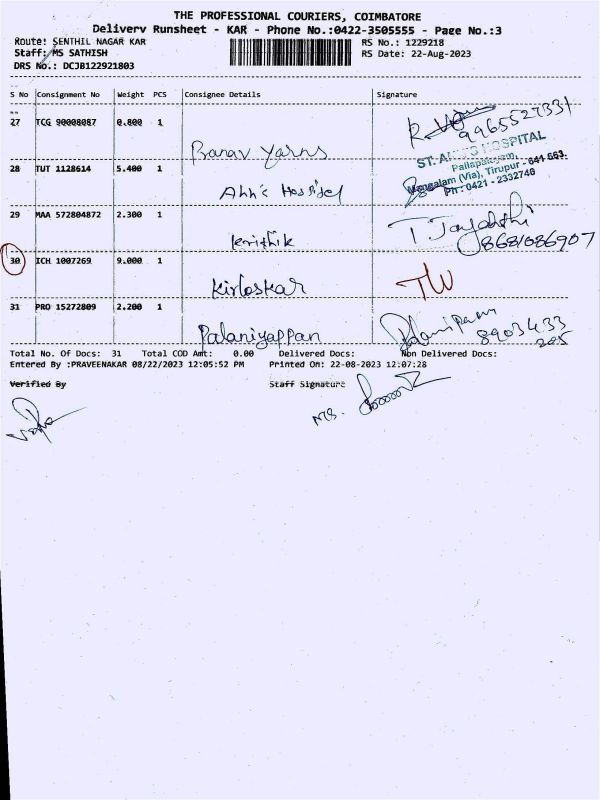 THE PROFESSIONAL COURIERS, COIMBATORE
Delivery Runsheet - KAR - Phone No.:0422-3505555 - Page No.:3
Route: SENTHIL NAGAR KAR
RS No.: 1229218
Staff: MS SATHISH
RS Date: 22-Aug-2023
DRS No.: DCJB122921803
S No Consignment No Weight PCS Consignee Details Signature
27 TCG 90008087 0.800 1 Pranav Yarns 9965527331
28 TUT 1128614 5.400 1 Ann's Hospital
ST. ANN'S HOSPITAL
Pallapalayam,
Mangalam (Via), Tirupur - 641 663.
PH : 0421 - 2332740
29 MAA 572804872 2.300 1 krithik T Jayanthi
8681086907
30 ICH 1007269 9.000 1 Kirloskar
31 PRO 15272809 2.200 1 Palaniyappan
8903433
205
Total No. Of Docs: 31 Total COD Amt: 0.00 Delivered Docs: Non Delivered Docs:
Entered By :PRAVEENAKAR 08/22/2023 12:05:52 PM Printed On: 22-08-2023 12:07:28
Verified By Staff Signature
MS.